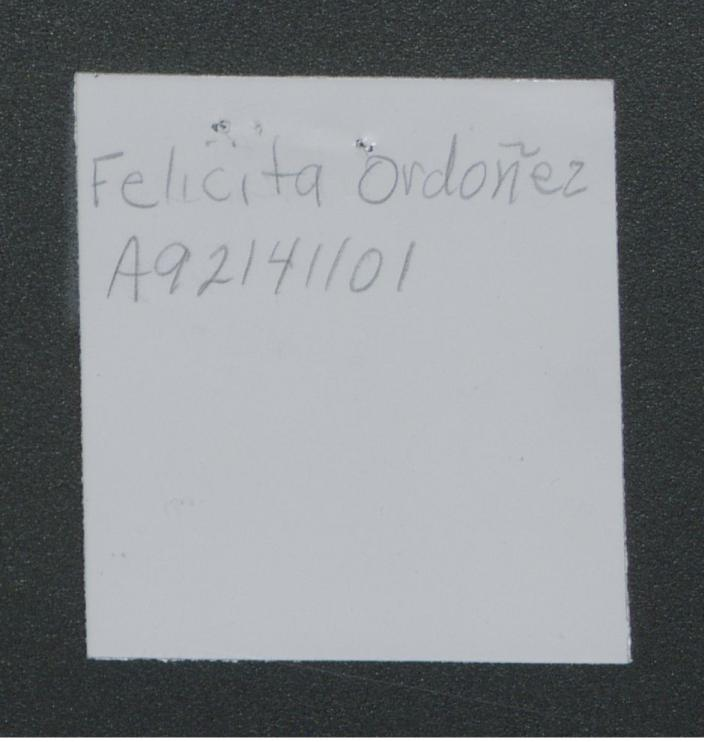 Felicita Ordoñez
A92141101